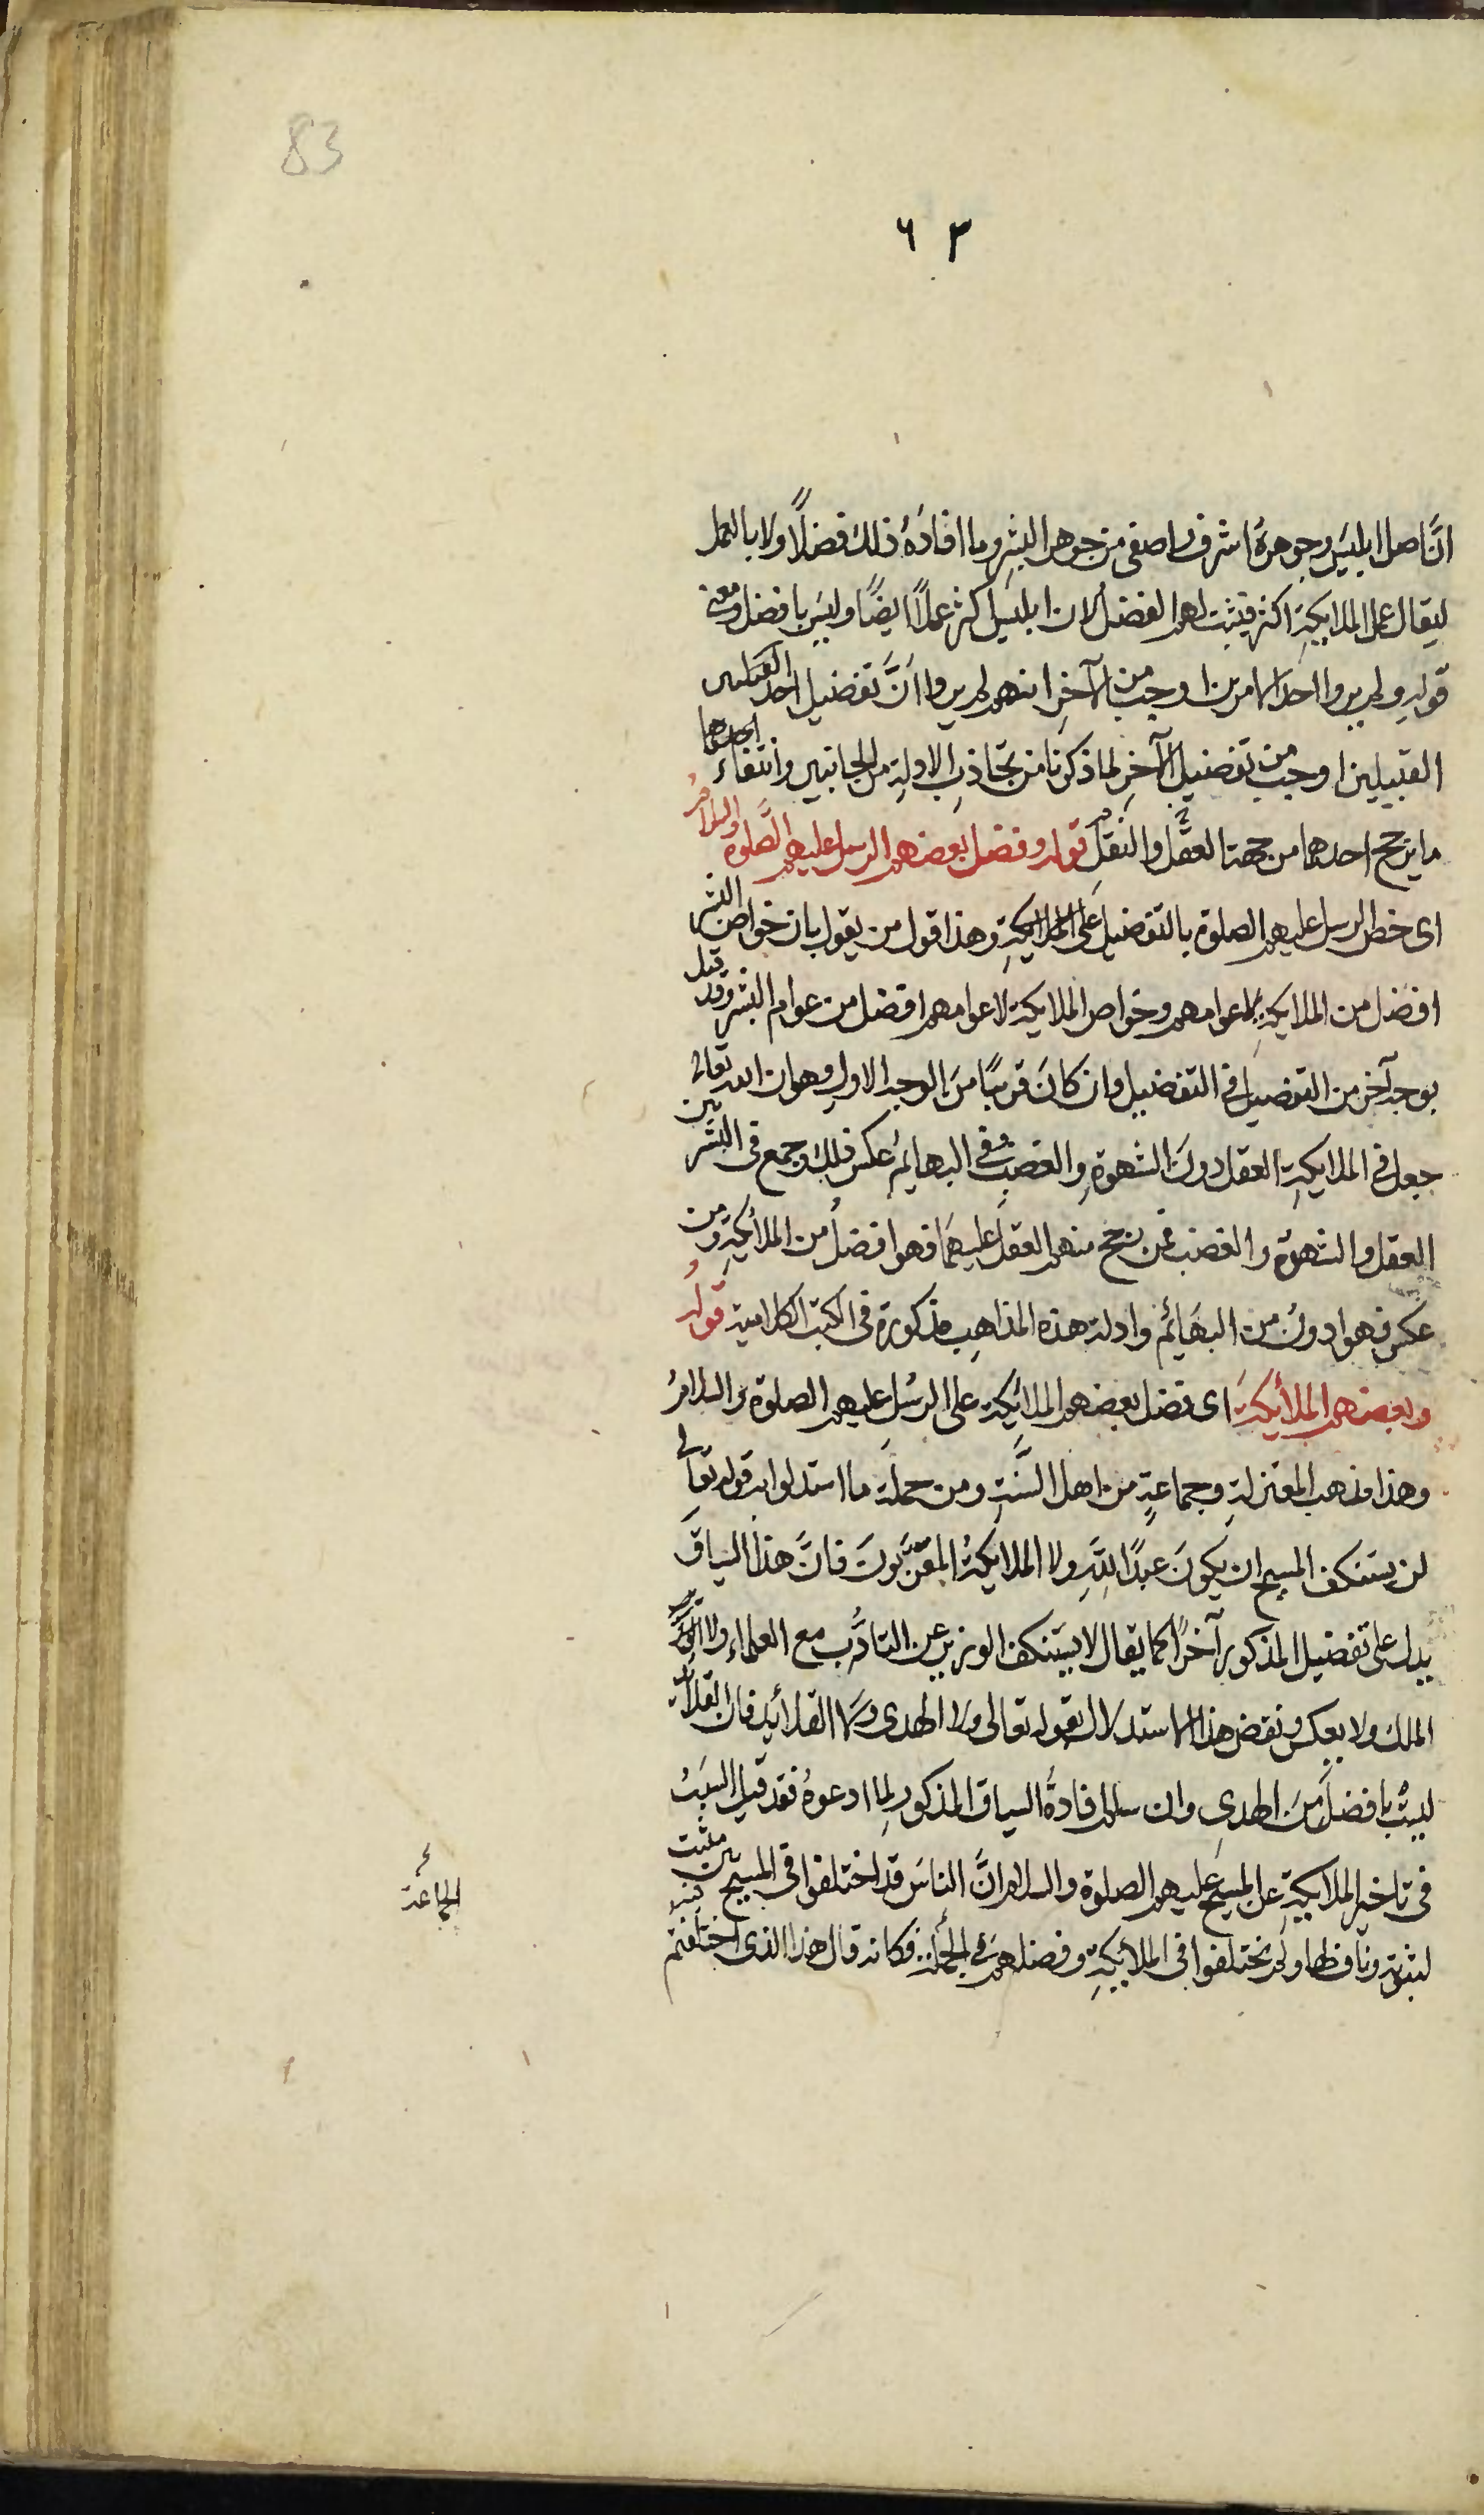 83
٦٣
انَّ اصل ابليسَ وجوهرهُ اشرف واصفى من جوهر البشرِ وما افادَهُ ذلك فضلًا ولا بالعمل
ليقال عمل الملايكةِ اكثر فيثبت لهم الفضلُ لان ابليسَ اكثر عملًا ايضًا وليسَ بافضل ومعنى
قولهِ ولم يروا احد الامرين اوجب من الآخرِ انهم لم يروا انَّ تفضيل احد القبيلين
القبيلين اوجب من تفضيلِ الآخرِ لما ذكرنا من تجاذبِ الادلةِ من الجانبين وانتفاء
ما يرجح احدهما من جهة العقل والنقل قوله وفضل بعضهم الرسل عليهم الصلوة والسلامُ
اى خص الرسل عليهم الصلوة بالتفضيل على الملايكةِ وهذا قول من يقول بان خواص البشر
افضل من الملايكةِ لا عوامهم وخواص الملايكة لا عوامهم افضل من عوام البشر وقد قيل
بوجه آخر من التفضيل فى التفضيل وان كانَ قريبًا منَ الوجه الاولِ وهو ان الله تعالى
جعل فى الملايكةِ العقل دونَ الشهوةِ والغضب وفى البهايم عكس ذلك وجمع فى البشر بين
العقل والشهوة والغضب فمن رجح منهم العقل عليهمَا فهو افضلُ من الملائكةِ ومن
عكس فهو ادونُ من البهَائم وادلة هذه المذاهبِ مذكورة فى الكتب الكلامية قولهُ
وبعضهم الملائكةَ اى فضل بعضهم الملائكةَ على الرسُلِ عليهم الصلوة والسلامُ
وهذا مذهب المعتزلةِ وجماعةٍ من اهل السنَّةِ ومن جملة ما استدلوا به قوله تعالى
لن يستنكف المسيح ان يكونَ عبدًا للهِ ولا الملايكةُ المقرَّبونَ فانَّ هذا السياقَ
يدل على تفضيل المذكور آخرًا كما يقال لا يستنكف الوزير عن التأدُّبِ مع العلماء ولا
الملك ولا يعكس ونقض هذا الاستدلال بقوله تعالى ولا الهدى ولا القلائد فان القلائد
ليستْ بافضلَ منَ الهدىِ وان سلم افادةُ السياق المذكور لما ادعوهُ فقد قيل السببُ
فى تاخير الملايكةِ عن المسيح عليهم الصلوة والسلام انَّ الناسَ قد اختلفوا فى المسيح بين مثبت
لبنوته ونافٍ لها ولم يختلفوا فى الملائكةِ وفضلهم فى الجملة فكانه قال هذا الذى اختلفتم
الجماعة